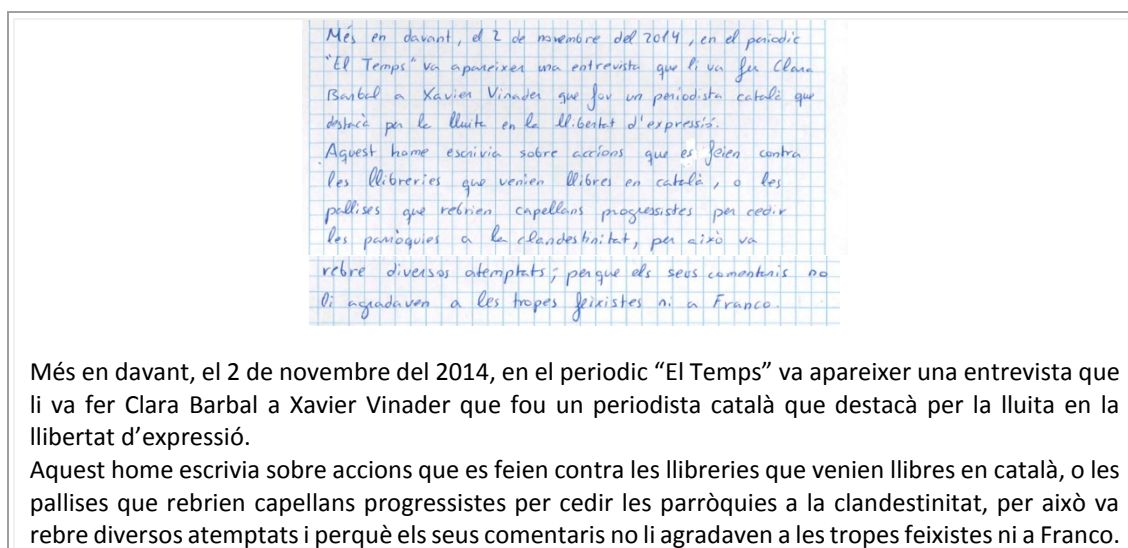 Més en davant, el 2 de novembre del 2014, en el periodic
"El Temps" va apareixer una entrevista que li va fer Clara
Barbal a Xavier Vinader que fou un periodista català que
destacà per la lluita en la llibertat d'expressió.
Aquest home escrivia sobre accions que es feien contra
les llibreries que venien llibres en català, o les
pallises que rebrien capellans progressistes per cedir
les parròquies a la clandestinitat, per això va
rebre diversos atemptats; perque els seus comentaris no
li agradaven a les tropes feixistes ni a Franco.
Més en davant, el 2 de novembre del 2014, en el periodic “El Temps” va apareixer una entrevista que
li va fer Clara Barbal a Xavier Vinader que fou un periodista català que destacà per la lluita en la
llibertat d’expressió.
Aquest home escrivia sobre accions que es feien contra les llibreries que venien llibres en català, o les
pallises que rebrien capellans progressistes per cedir les parròquies a la clandestinitat, per això va
rebre diversos atemptats i perquè els seus comentaris no li agradaven a les tropes feixistes ni a Franco.